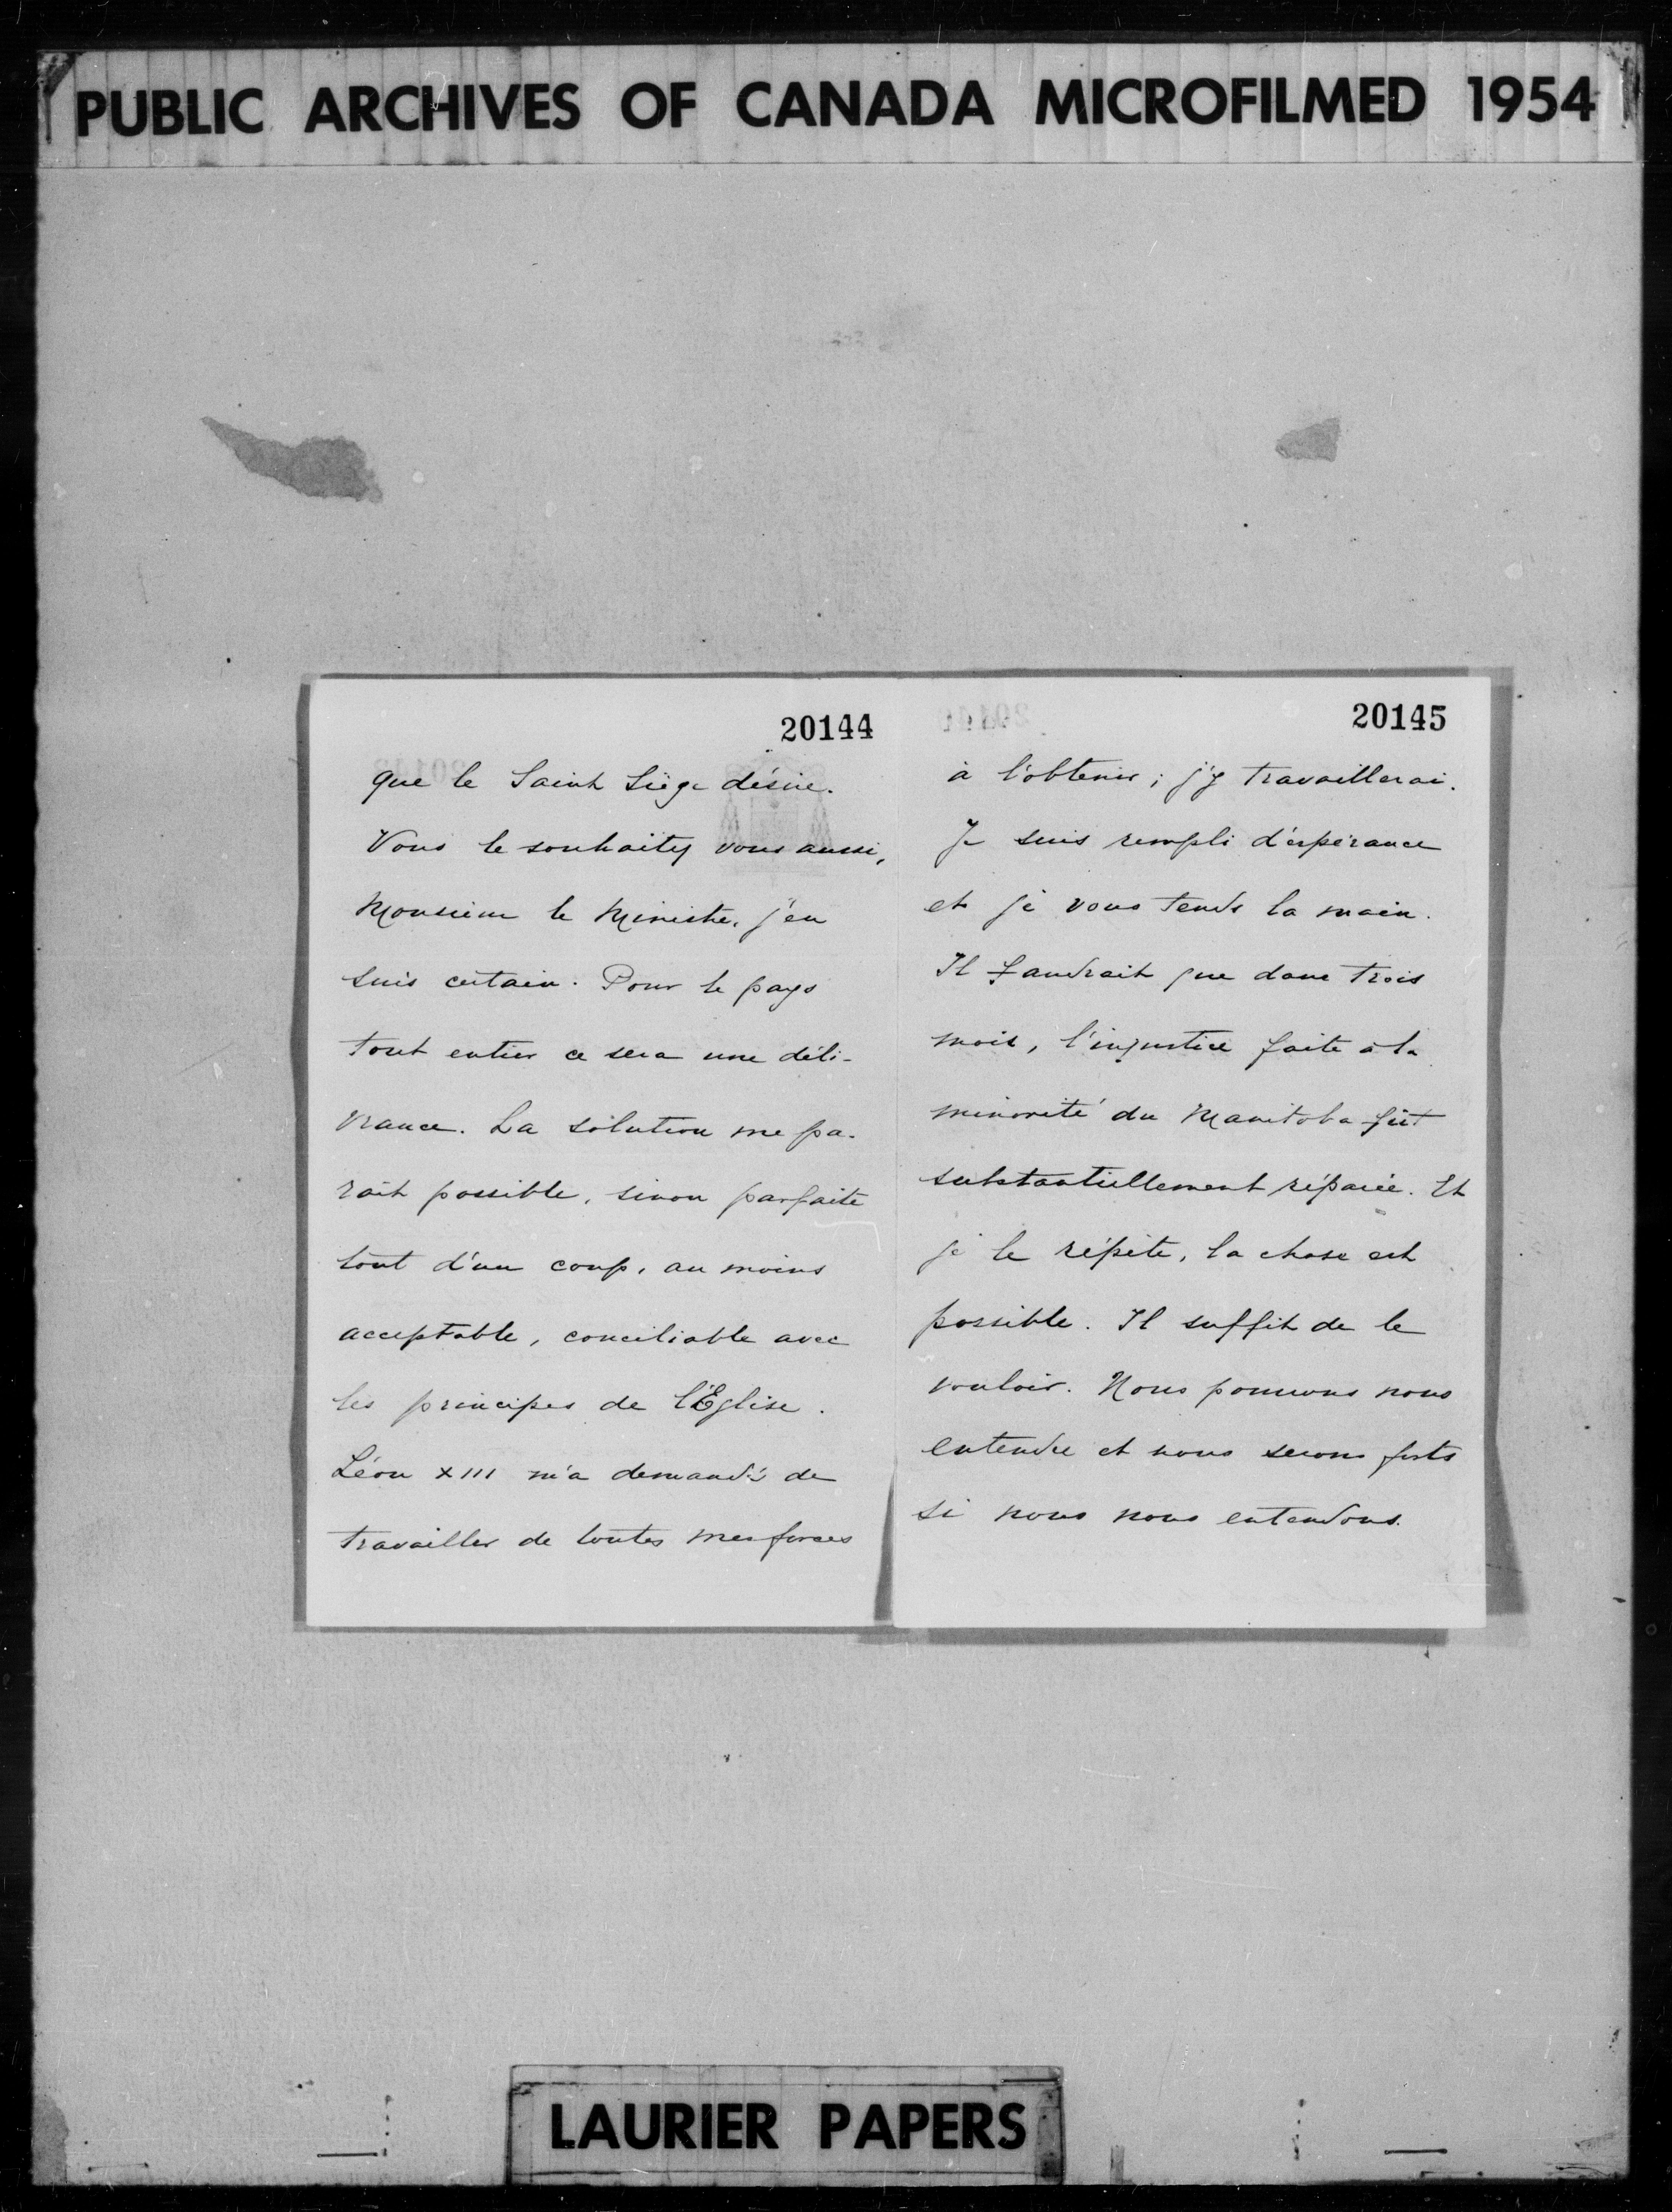 PUBLIC ARCHIVES OF CANADA MICROFILMED 1954
20144
que le Saint Siège désire.
Vous le souhaitez vous aussi,
Monsieur le Ministre, j'en
suis certain. Pour le pays
tout entier ce sera une déli-
vrance. La solution me pa-
raît possible, sinon parfaite
tout d'un coup, au moins
acceptable, conciliable avec
les principes de l'Eglise.
Léon XIII m'a demandé de
travailler de toutes mes forces
20145
à l'obtenir ; j'y travaillerai.
Je suis rempli d'espérance
et je vous tends la main.
Il faudrait que dans trois
mois, l'injustice faite à la
minorité du Manitoba fût
substantiellement réparée. Et
je le répète, la chose est
possible. Il suffit de le
vouloir. Nous pouvons nous
entendre et nous serons forts
si nous nous entendons.
LAURIER PAPERS